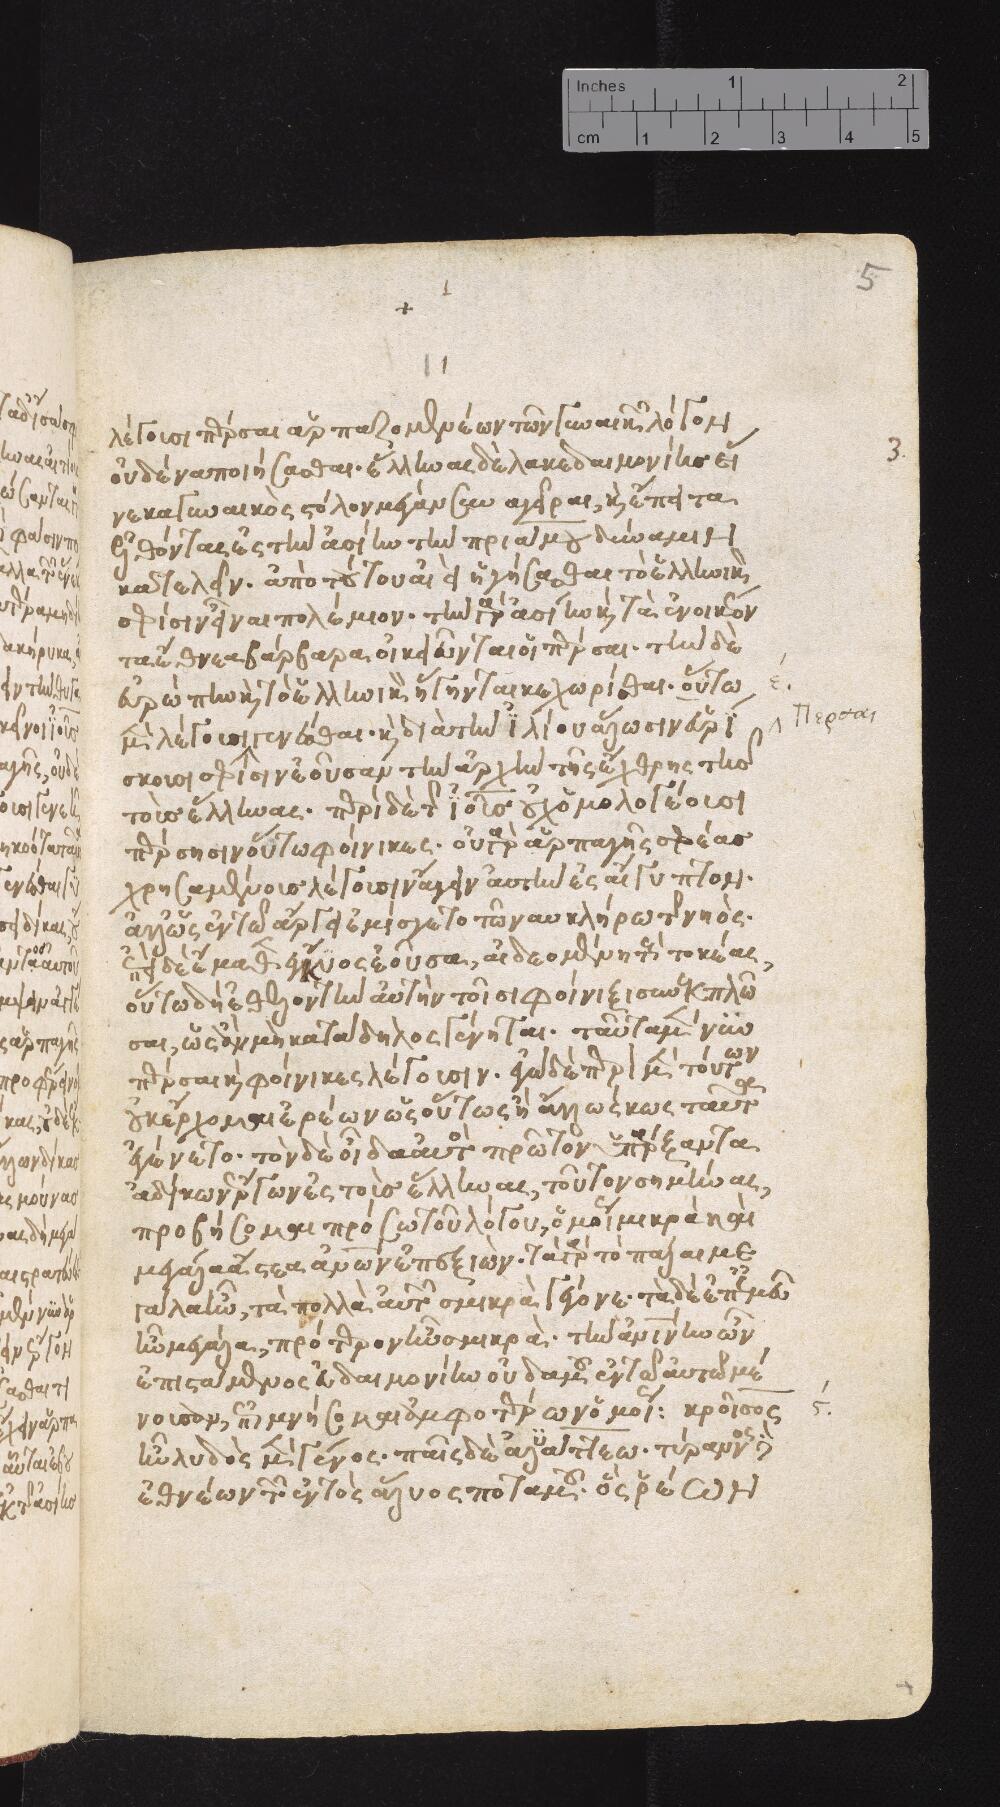 + 1
11
5
λέγουσι πέρσαι ἁρπαζομενέων τῶν γυναικῶν λόγον
οὐδένα ποιήσασθαι. ἕλληνας δὲ λακεδαιμονίης εἵ
νεκα γυναικὸς στόλον μέγαν συναγεῖραι, καὶ ἔπειτα
ἐλθόντας ἐς τὴν ἀσίην τὴν πριάμου δύναμιν
κατελεῖν. ἀπὸ τούτου αἰεὶ ἡγήσασθαι τὸ ἑλληνικὸν
σφίσιν εἶναι πολέμιον. τὴν γὰρ ἀσίην καὶ τὰ ἐνοικέον
τα ἔθνεα βάρβαρα οἰκειῶνται οἱ πέρσαι. τὴν δὲ
εὐρώπην καὶ τὸ ἑλληνικὸν ἥγηνται κεχωρίσθαι. οὕτω
μὲν λέγουσι γενέσθαι. καὶ διὰ τὴν ἰλίου ἅλωσιν εὑρί
σκουσι σφίσιν ἐοῦσαν τὴν ἀρχὴν τῆς ἔχθρης τῆς
τοὺς ἕλληνας. περὶ δὲ τῆς ἰοῦς οὐχ ὁμολογέουσι
πέρσῃσιν οὕτω φοίνικες. οὐ γὰρ ἁρπαγῆς σφέας
χρησαμένους λέγουσιν ἀγαγεῖν αὐτὴν ἐς αἴγυπτον.
ἀλλ' ὡς ἐν τῷ ἄργει ἐμίσγετο τῷ ναυκλήρῳ τῆς νηός.
ἐπεὶ δὲ ἔμαθεν ἔγκυος ἐοῦσα, αἰδεομένη τοὺς τοκέας,
οὕτω δὴ ἐθελοντὴν αὐτὴν τοῖσι φοίνιξι συνεκπλῶ
σαι, ὡς ἂν μὴ κατάδηλος γένηται. ταῦτα μέν νυν
πέρσαι καὶ φοίνικες λέγουσιν. ἐγὼ δὲ περὶ μὲν τούτων
οὐκ ἔρχομαι ἐρέων ὡς οὕτως ἢ ἄλλως κως ταῦτα
ἐγένετο. τὸν δὲ οἶδα αὐτὸς πρῶτον ὑπάρξαντα
ἀδίκων ἔργων ἐς τοὺς ἕλληνας, τοῦτον σημήνας,
προβήσομαι πρόσω τοῦ λόγου, ὁμοῖ μικρὰ καὶ
μεγάλα ἄστεα ἀνων ἐπεξιών. τὰ γὰρ τὸ πάλαι με
γάλα ἦν, τὰ πολλὰ αὐτῶν σμικρὰ γέγονε. τὰ δὲ ἐπ' ἐμεῦ
ἦν μεγάλα, πρότερον ἦν σμικρὰ. τὴν ἀνίνην ὦν
ἐπιστάμενος εὐδαιμονίην οὐδαμᾶ ἐν τωυτῷ μέ
νουσαν, ἐπιμνήσομαι ἀμφοτέρων ὁμοί: κροῖσος
ἦν λυδὸς μὲν γένος. παῖς δὲ ἀλυάττεω. τύραννος δὲ
ἐθνέων τῶν ἐντὸς ἅλυος ποταμοῦ. ὃς ῥέων
3.
έ.
λ Περσαι
ς.
Inches 1 2
cm 1 2 3 4 5